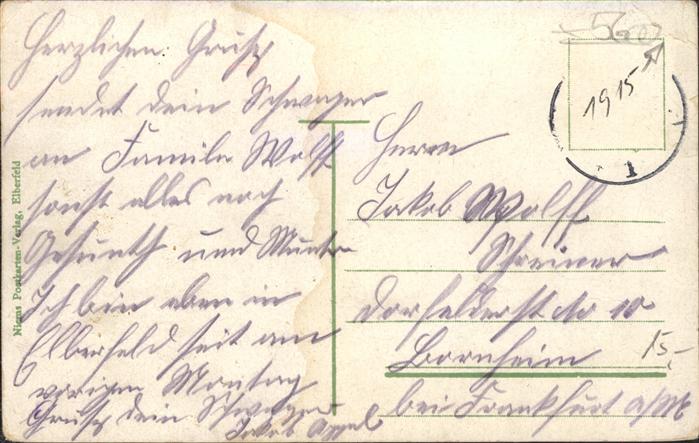 Herzlichen Grusz
sendet dein Schwager
an Famile Wolff
sonst alles noch
Gesunth und Munter
Ich bin eben in
Elberfeld seit am
vorigen Montag
Grusz dein Schwager
Jakob Appel
Herrn
Jakob Wolff
Schreiner
Dorfelderst No 10
Bornheim
bei Frankfurt a/M
1915
1
15-
Niems Postkarten-Verlag, Elberfeld